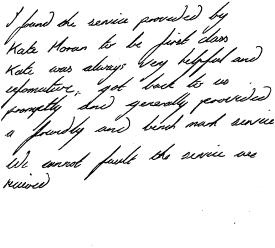 I found the service provided by
Kate Moran to be first class
Kate was always very helpful and
informative, got back to us
promptly and generally provided
a friendly and bench mark service
We cannot fault the service we
received